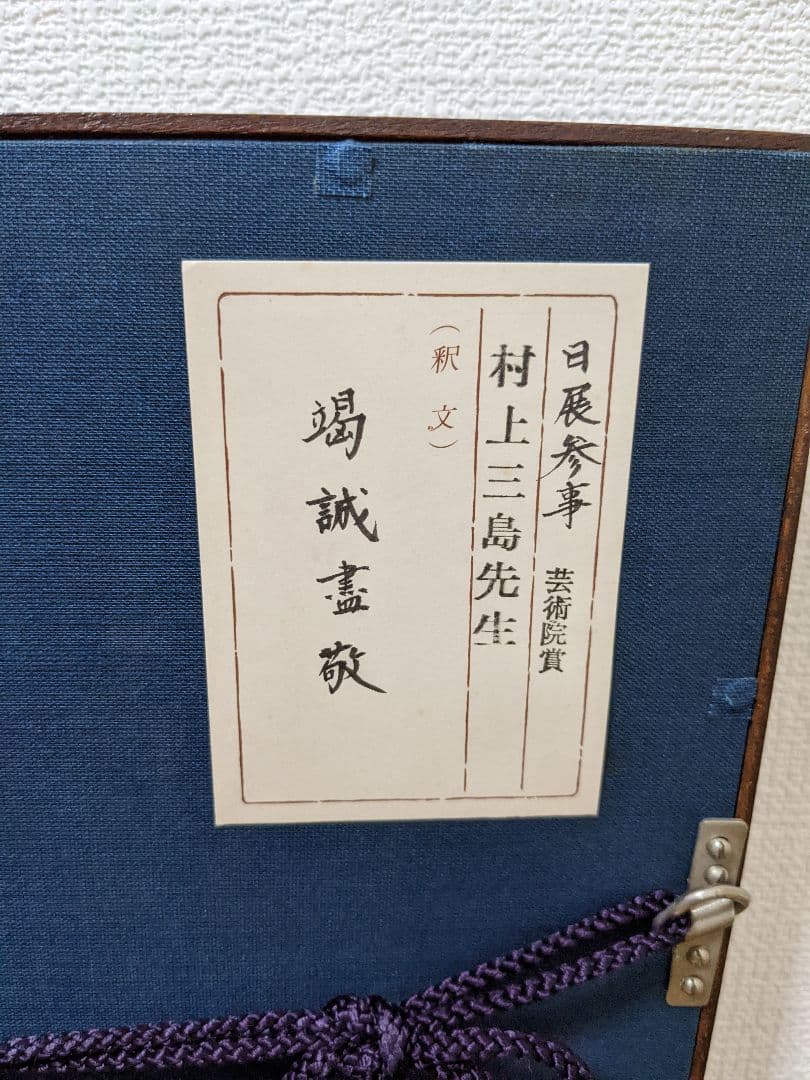 日展参事 芸術院賞
村上三島先生
（釈文）
竭誠盡敬